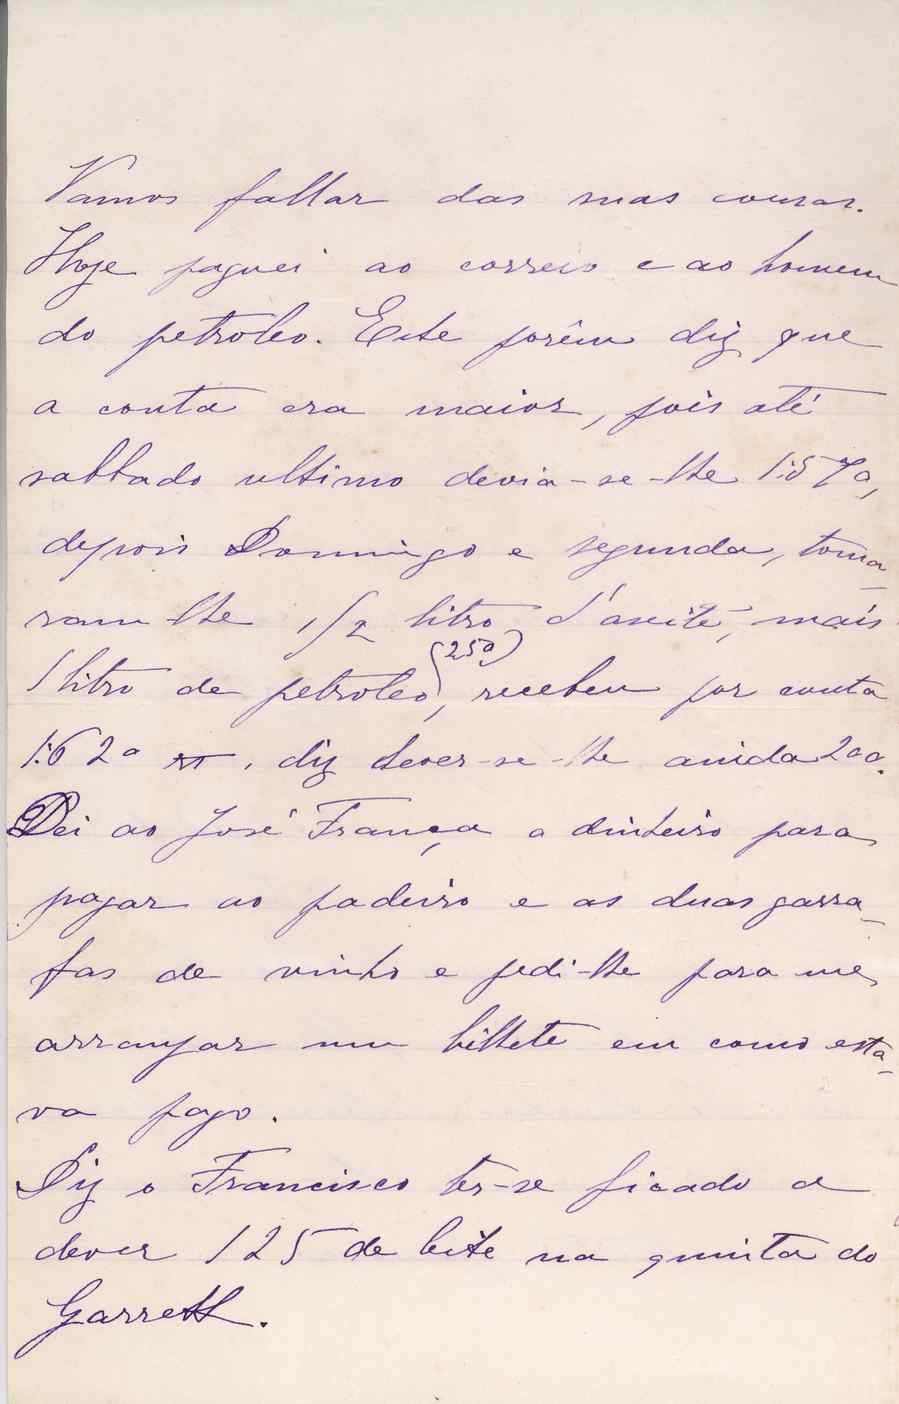 Vamos fallar das suas cousas.
Hoje paguei ao correio e ao homem
do petroleo. Este porêm diz que
a conta era maior, pois até
sabbado ultimo devia-se-lhe 1:570,
depois Domingo e segunda, toma-
ram lhe 1/2 litro d'aseite, mais
(250)
1 litro de petroleo, recebeu por conta
1:620 rs, diz dever-se-lhe ainda 200.
Dei ao José França o dinheiro para
pagar ao padeiro e as duas garra-
fas de vinho e pedi-lhe para me
arranjar um bilhete em como esta-
va pago.
Diz o Francisco ter-se ficado a
dever 125 de leite na quinta do
Garrett.